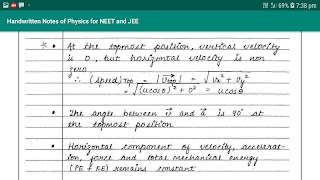 69% 7:38 pm
Handwritten Notes of Physics for NEET and JEE
* • At the topmost position, vertical velocity
is 0, but horizontal velocity is non
zero
∴ (speed)top = |v⃗top| = √vx² + vy²
= √(ucosθ)² + 0² = ucosθ
• The angle between v⃗ and a⃗ is 90° at
the topmost position
• Horizontal component of velocity, accelerat-
ion, force and total mechanical energy
(PE + KE) remains constant